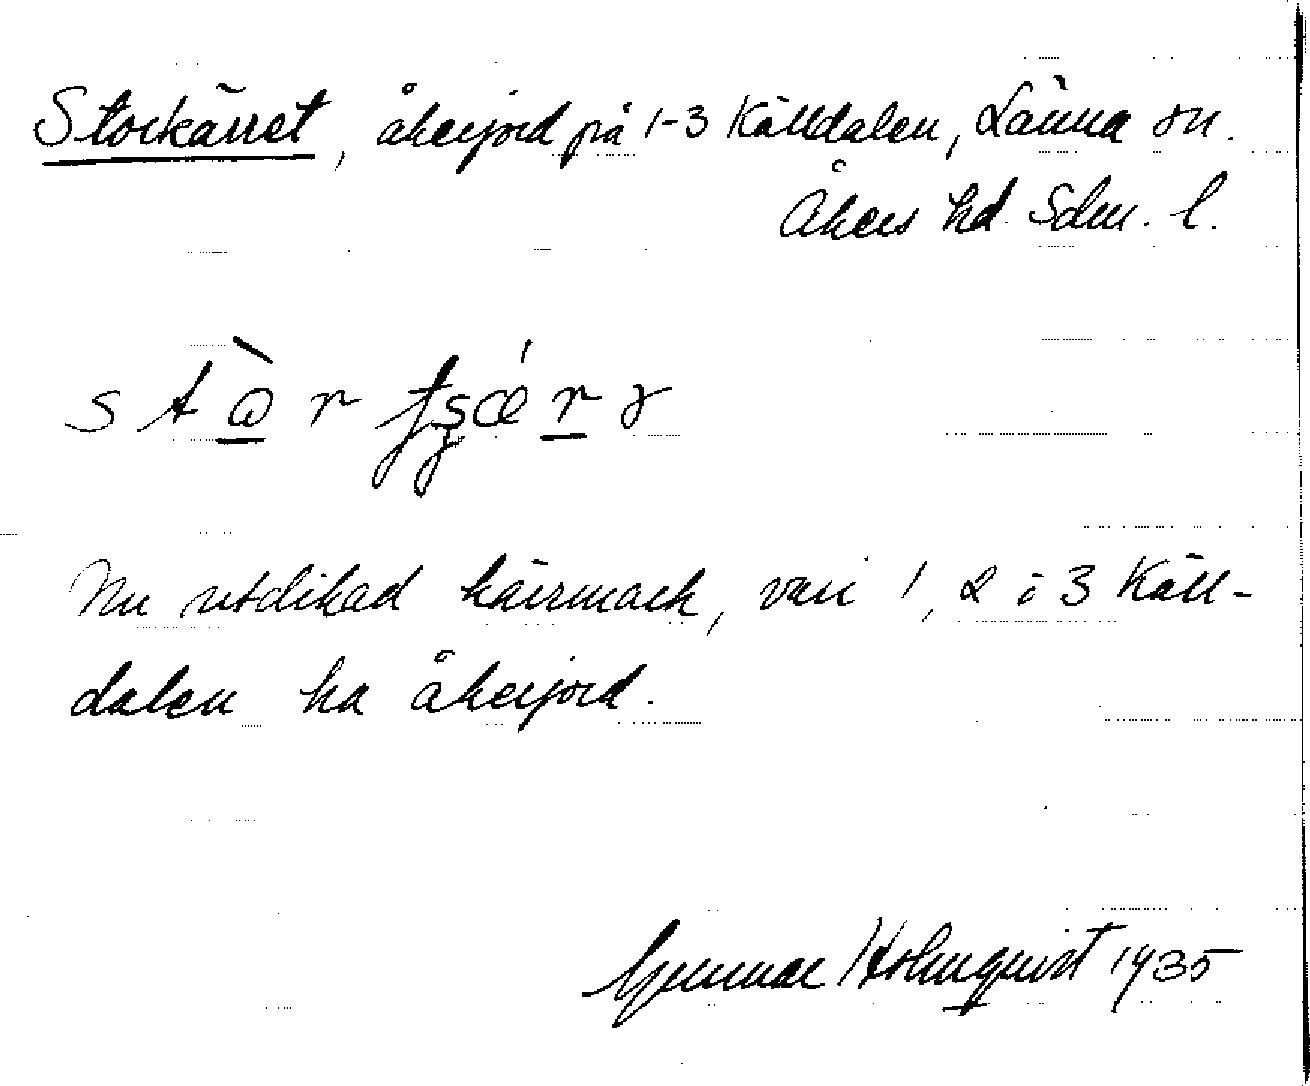 Storkärret, åkerjord på 1-3 Källdalen, Länna sn.
Åkers hd. Sdm. l.
Nu utdikad kärrmark, vari 1, 2 o 3 Käll-
dalen ha åkerjord.
Gunnar Holmquist 1935